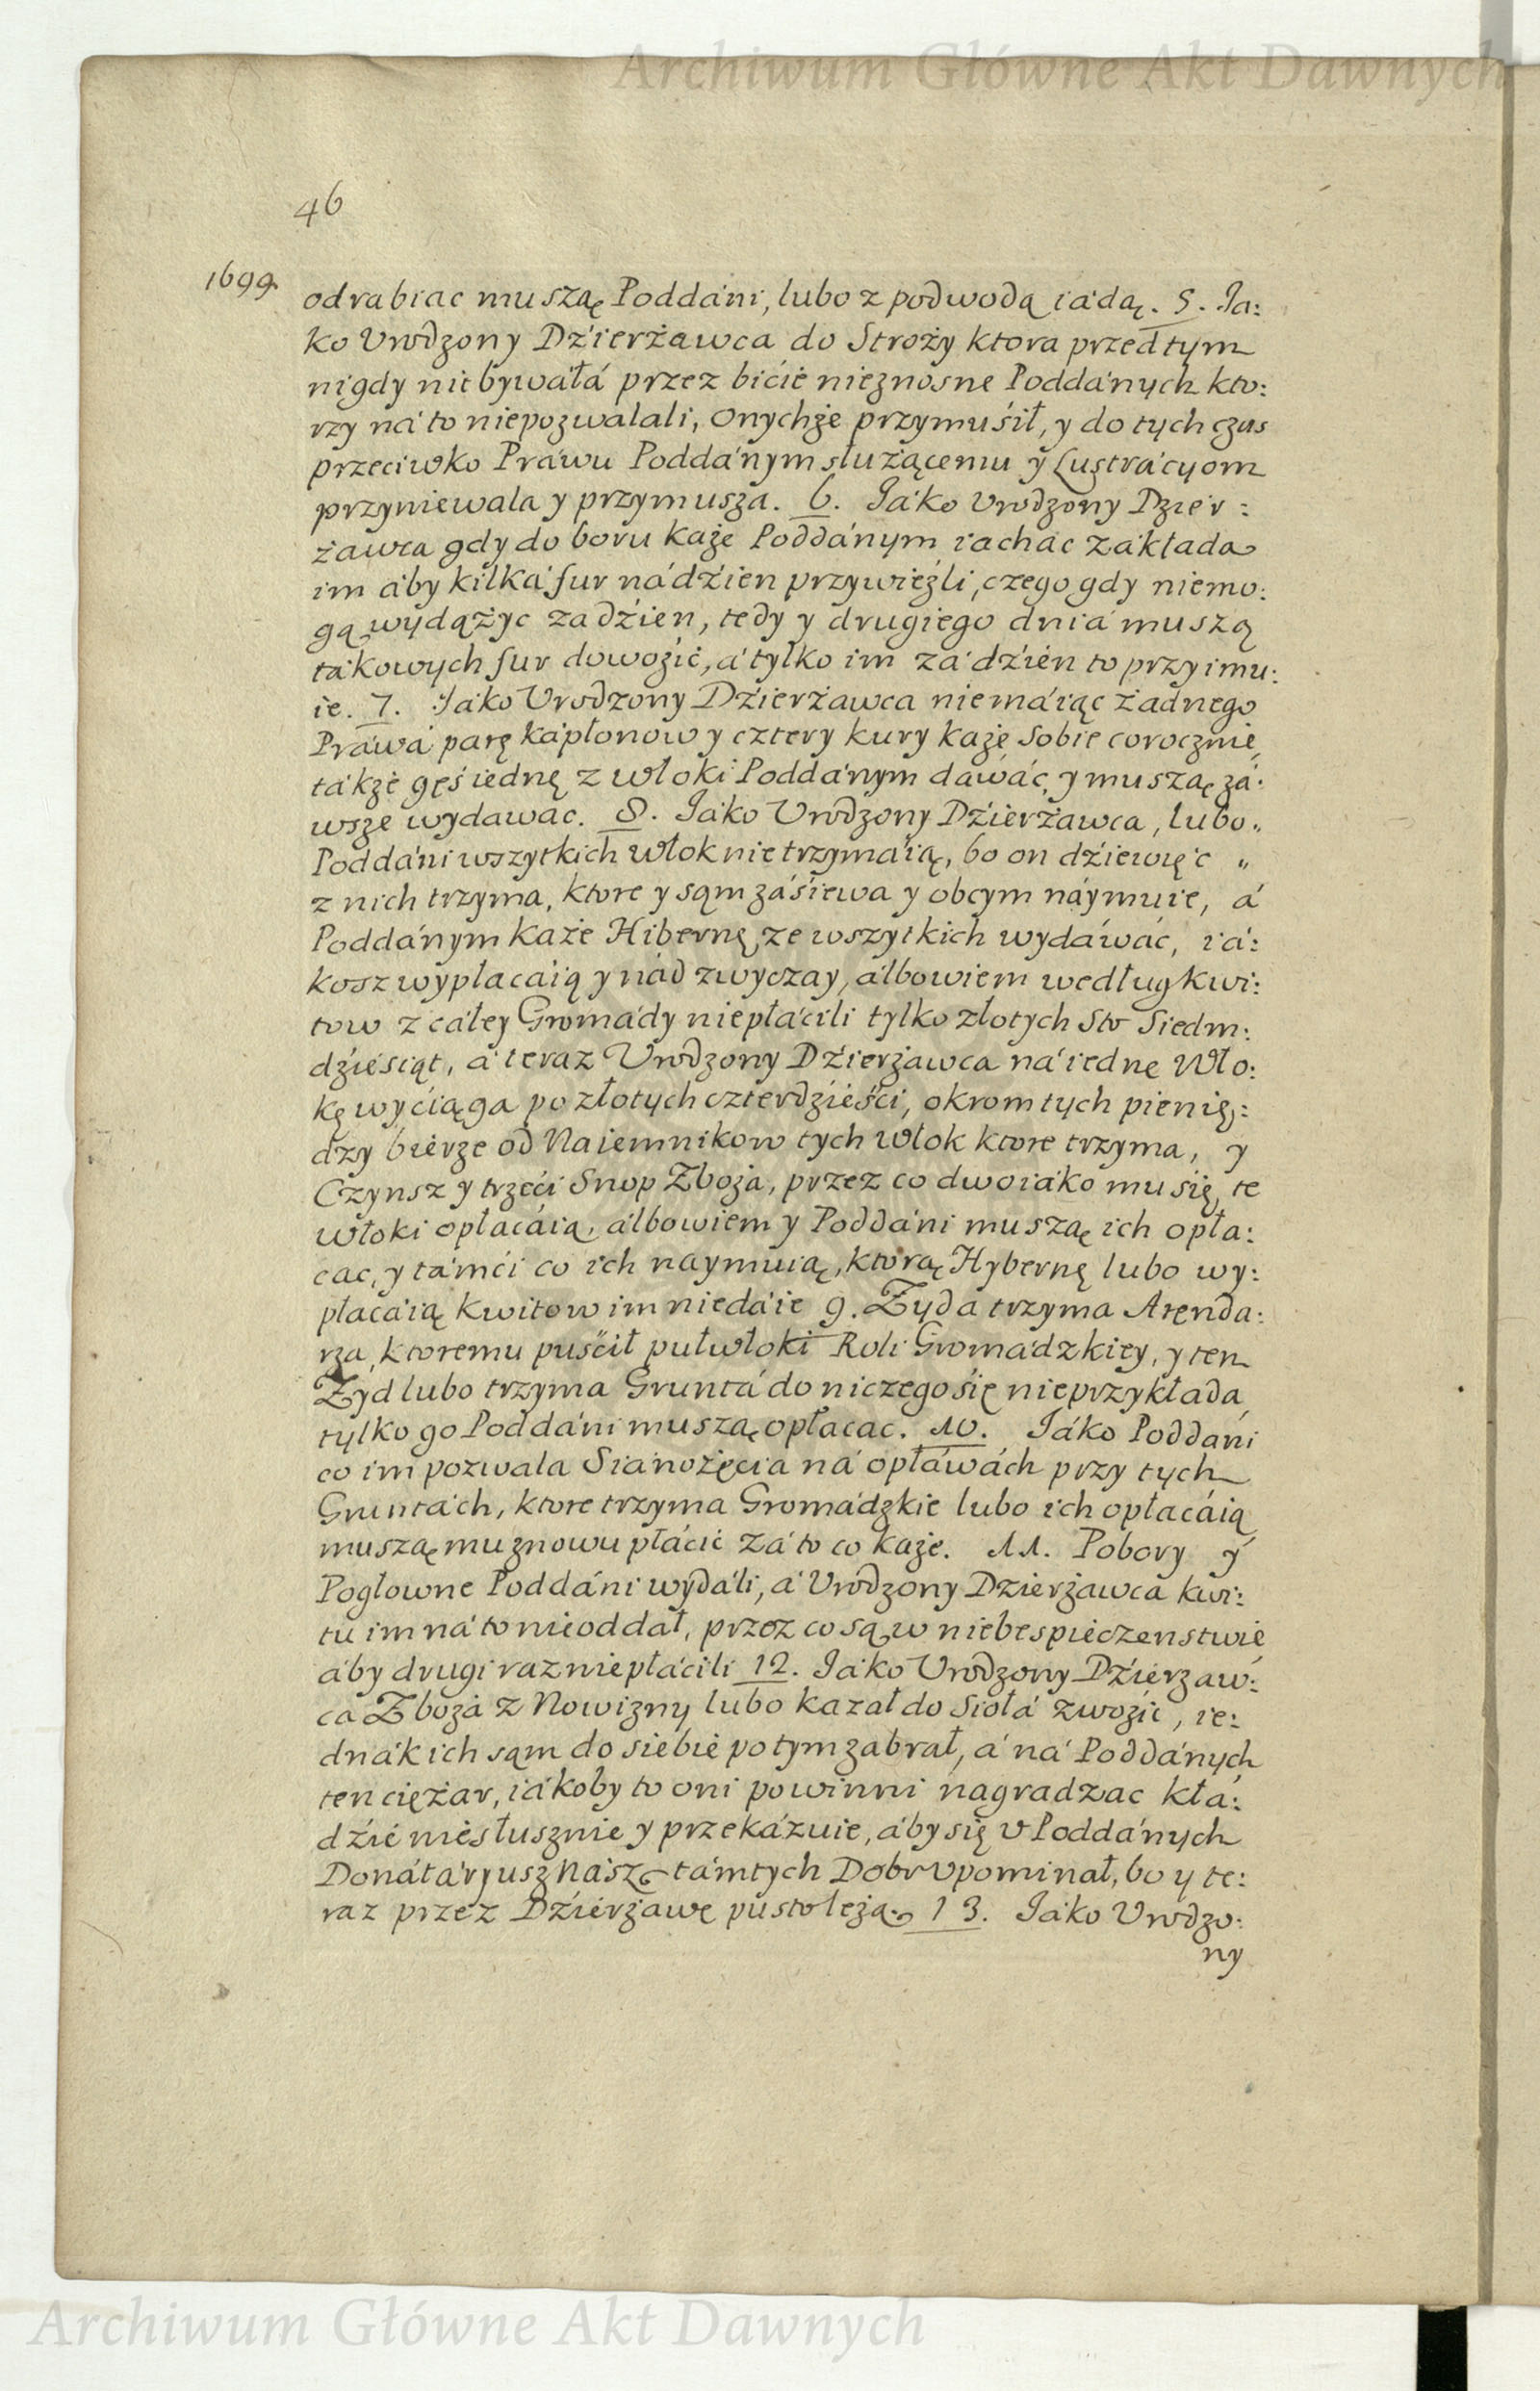 Archiwum Główne Akt Dawnych
46
1699.
odrabiac muszą Poddáni, lubo z podwodą iádą. 5. Ja:
ko Urodzony Dźierżawca do Stroży ktora przed tym
nigdy nie bywáłá przez bićie nieznosne Poddánych kto:
rzy ná to niepozwalali, onychże przymuśił, y do tych czas
przeciwko Práwu Poddánym służącemu y Lustrácyom
przyniewala y przymusza. 6. Jáko Urodzony Dzier:
żawca gdy do boru każe Poddánym iachác zákłada
im áby kilká fur ná dźien przywieźli, czego gdy niemo:
gą wydążyc za dźien, tedy y drugiego dniá muszą
tákowych fur dowoźić, á tylko im zá dźien to przyimu:
ie. 7. Jáko Urodzony Dźierżawca nie máiąc żadnego
Práwá parę kápłonow y cztery kury każe sobie corocznie,
tákże gęś iednę z włoki Poddánym dáwáć, y muszą zá:
wsze wydawac. 8. Jáko Urodzony Dźierżawca, lubo„
Poddáni wszytkich włok nie trzymáią, bo on dźiewięć „
z nich trzyma, ktore y sąm záśiewa y obcym náymuie, á
Poddánym każe Hibernę ze wszytkich wydáwáć, iá:
kosz wypłacáią y nád zwyczay, álbowiem według kwi:
tow z cáłey Gromády niepłácili tylko złotych Sto Siedm:
dźiesiąt, á teraz Urodzony Dźierżawca ná iednę Wło:
kę wyćiąga po złotych czterdźieśći, okrom tych pienię:
dzy bierze od Naiemnikow tych włok ktore trzyma, y
Czynsz y trzeći Snop Zbożá, przez co dwoiáko mu się te
włoki opłacáią, álbowiem y Poddáni muszą ich opłá:
cac, y támći co ich naymuią, ktorą Hybernę lubo wy:
płacáią kwitow im niedáie 9. Żyda trzyma Arendá:
rzá, ktoremu puśćił pułwłoki Roli Gromádzkiey, y ten
Żyd lubo trzyma Gruntá do niczego się nieprzykłada,
tylko go Poddáni muszą opłacac. 10. Jáko Poddáni
co im pozwala Siánożęcia ná opłáwách przy tych
Gruntách, ktore trzyma Gromádzkie lubo ich opłacáią
muszą mu znowu płácić zá to co każe. 11. Pobory y
Pogłowne Poddáni wydáli, á Urodzony Dzierżawca kwi:
tu im ná to nieoddał, przez co są w niebespieczenstwie
áby drugi raz niepłácili 12. Jáko Urodzony Dźierżaw:
cá Zbożá z Nowizny lubo kazał do Siołá zwoźić, ie:
dnák ich sąm do siebie potym zabrał, á ná Poddánych
ten ciężar, iákoby to oni powinni nagradzac kłá:
dźie niesłusznie y przekázuie, áby się v Poddánych
Donátáryusz Nász támtych Dobr vpominał, bo y te:
raz przez Dźierżawę pusto leżą. 13. Jáko Urodzo:
ny
Archiwum Główne Akt Dawnych